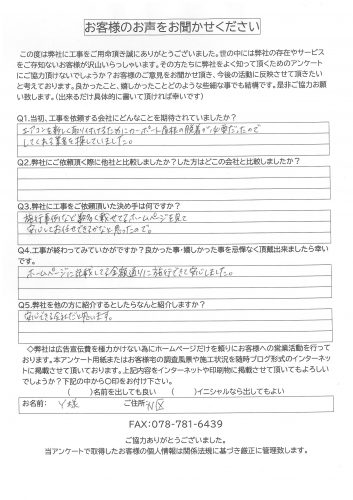 お客様のお声をお聞かせください
この度は弊社に工事をご用命頂き誠にありがとうございました。世の中には弊社の存在やサービス
をご存知ないお客様が沢山いらっしゃいます。その方たちに弊社をよく知って頂くためのアンケート
にご協力頂けないでしょうか?お客様のご意見をお聞かせ頂き、今後の活動に反映させて頂きたい
と考えております。良かったこと、嬉しかったことどのような些細な事でも結構です。是非ご協力お願
い致します。(出来るだけ具体的に書いて頂ければ幸いです)
Q1.当初、工事を依頼する会社にどんなことを期待されていましたか?
エアコンを新しく取り付けるためにカーポート屋根の脱着が必要だったので
してくれる業者を探していました。
Q2.弊社にご依頼頂く際に他社と比較しましたか?した方はどこの会社と比較しましたか?
Q3.弊社に工事をご依頼頂いた決め手は何ですか?
施行事例など数多く載せてるホームページを見て
安心してお任せできるかなと思ったので。
Q4.工事が終わってみていかがですか?良かった事・嬉しかった事を忌憚なく頂戴出来ましたら幸
いです。
ホームページに記載してる金額通りに施行できて安心しました。
Q5.弊社を他の方に紹介するとしたらなんと紹介しますか?
安心できる会社だと思います。
◇弊社は広告宣伝費を極力かけない為にホームページだけを頼りにお客様への営業活動を行って
おります。本アンケート用紙またはお客様宅の調査風景や施工状況を随時ブログ形式のインターネッ
トに掲載させて頂いております。上記内容をインターネットや印刷物に掲載させて頂いてもよろしい
でしょうか?下記の中から〇印をお付け下さい。
( )名前を出しても良い ( )イニシャルなら出してもよい
お名前: Y様 ご住所:N区
FAX:078-781-6439
ご協力ありがとうございました。
当アンケートで取得したお客様の個人情報は関係法規に基づき厳正に管理致します。